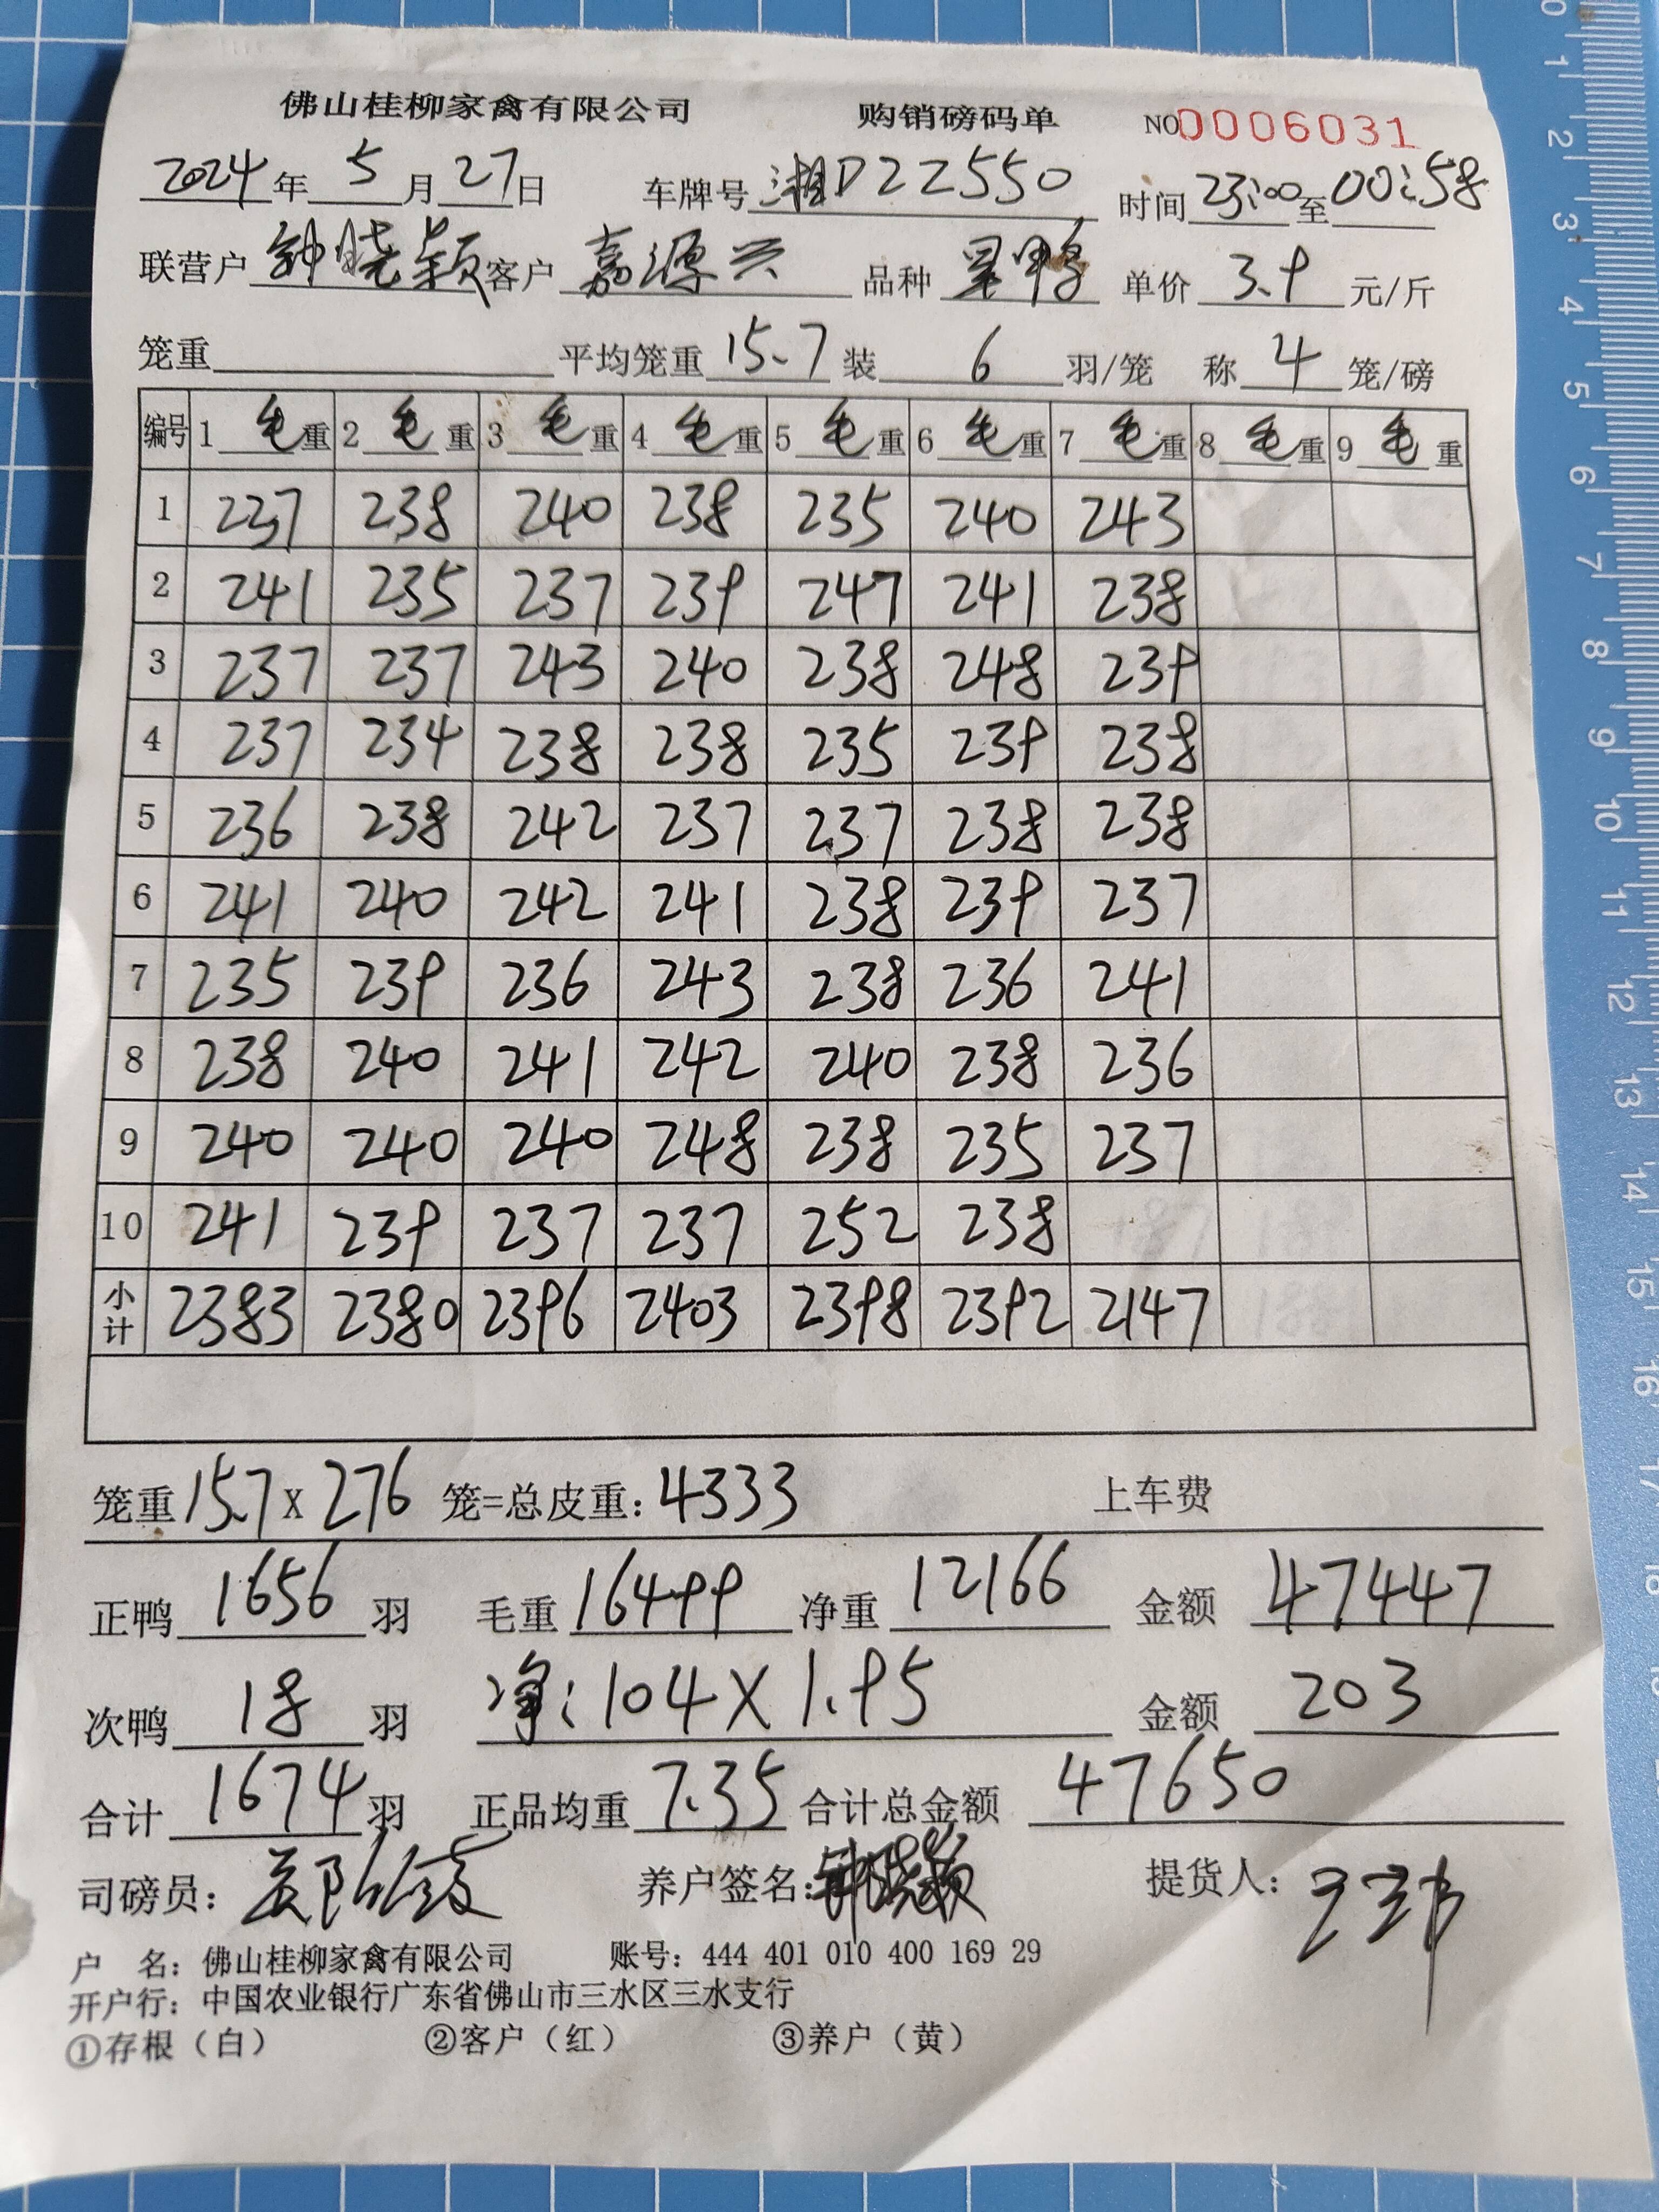 佛山桂柳家禽有限公司 购销磅码单 NO 0006031
2024年 5 月 27 日 车牌号 湘D2Z550 时间 23:00 至 00:58
联营户 钟晓颖 客户 嘉源兴 品种 单价 3.9 元/斤
笼重 平均笼重 15.7 装 6 羽/笼 称 4 笼/磅
编号 1 毛重 2 毛重 3 毛重 4 毛重 5 毛重 6 毛重 7 毛重 8 毛重 9 毛重
1 237 238 240 238 235 240 243
2 241 235 237 239 247 241 238
3 237 237 243 240 238 248 239
4 237 234 238 238 235 239 238
5 236 238 242 237 237 238 238
6 241 240 242 241 238 239 237
7 235 239 236 243 238 236 241
8 238 240 241 242 240 238 236
9 240 240 240 248 238 235 237
10 241 239 237 237 252 238
小计 2383 2380 2396 2403 2398 2392 2147
笼重 15.7 X 276 笼=总皮重: 4333 上车费
正鸭 1656 羽 毛重 16499 净重 12166 金额 47447
次鸭 18 羽 净: 104 X 1.95 金额 203
合计 1674 羽 正品均重 7.35 合计总金额 47650
司磅员: 养户签名: 钟晓颖 提货人:
户 名: 佛山桂柳家禽有限公司 账号: 444 401 010 400 169 29
开户行: 中国农业银行广东省佛山市三水区三水支行
①存根（白） ②客户（红） ③养户（黄）